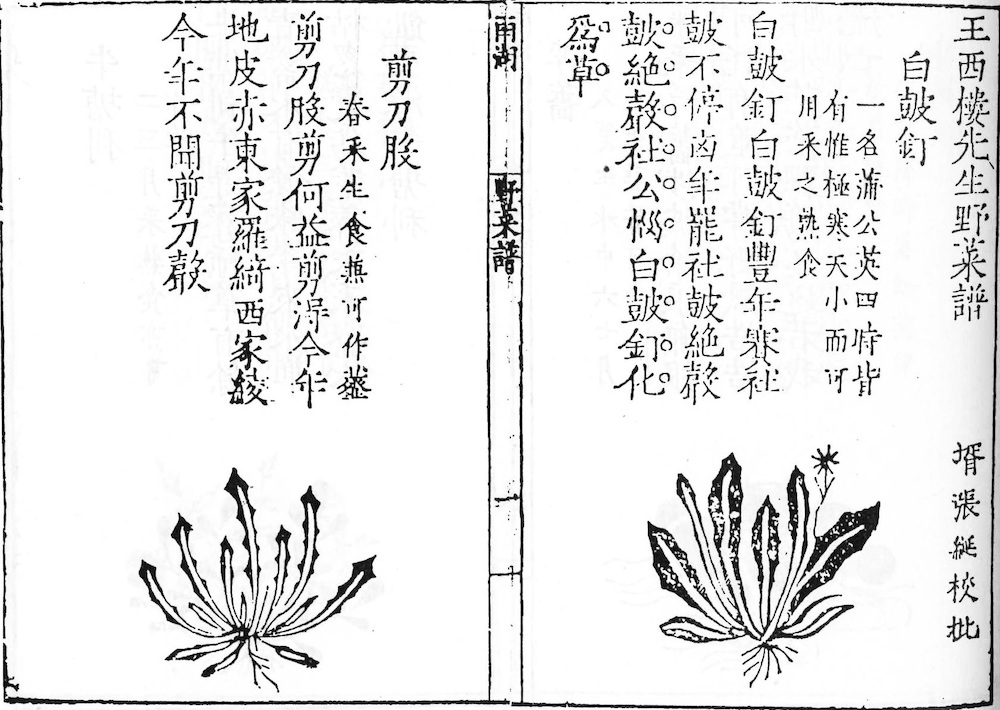 王西樓先生野菜譜 壻張綖校批
白皷釘
一名蒲公英四時皆
有惟極寒天小而可
用采之熟食
白皷釘白皷釘豐年賽社
皷不停凶年罷社皷絶聲
皷絶聲社公惱白皷釘化
爲草
南湖 野菜譜
剪刀股
春采生食兼可作虀
剪刀股剪何益剪得今年
地皮赤東家羅綺西家綾
今年不聞剪刀聲